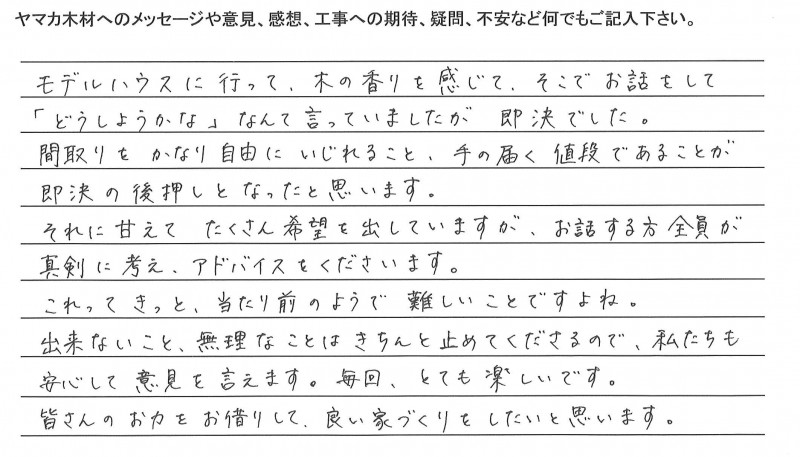 ヤマカ木材へのメッセージや意見、感想、工事への期待、疑問、不安など何でもご記入下さい。
モデルハウスに行って、木の香りを感じて、そこでお話をして
「どうしようかな」なんて言っていましたが 即決でした。
間取りをかなり自由にいじれること、手の届く値段であることが
即決の後押しとなったと思います。
それに甘えて たくさん希望を出していますが、お話する方全員が
真剣に考え、アドバイスをくださいます。
これってきっと、当たり前のようで 難しいことですよね。
出来ないこと、無理なことはきちんと止めてくださるので、私たちも
安心して意見を言えます。毎回、とても楽しいです。
皆さんのお力をお借りして、良い家づくりをしたいと思います。